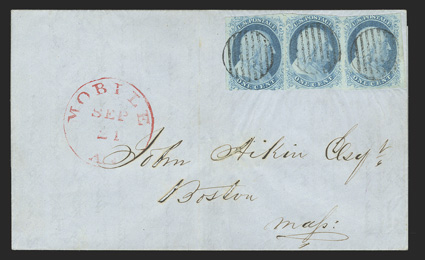 U.S. POSTAGE U.S. POSTAGE U.S. POSTAGE
ONE CENT. ONE CENT. ONE CENT.
MOBILE
SEP
21
John Aikin Esqr.
Boston
Mass: